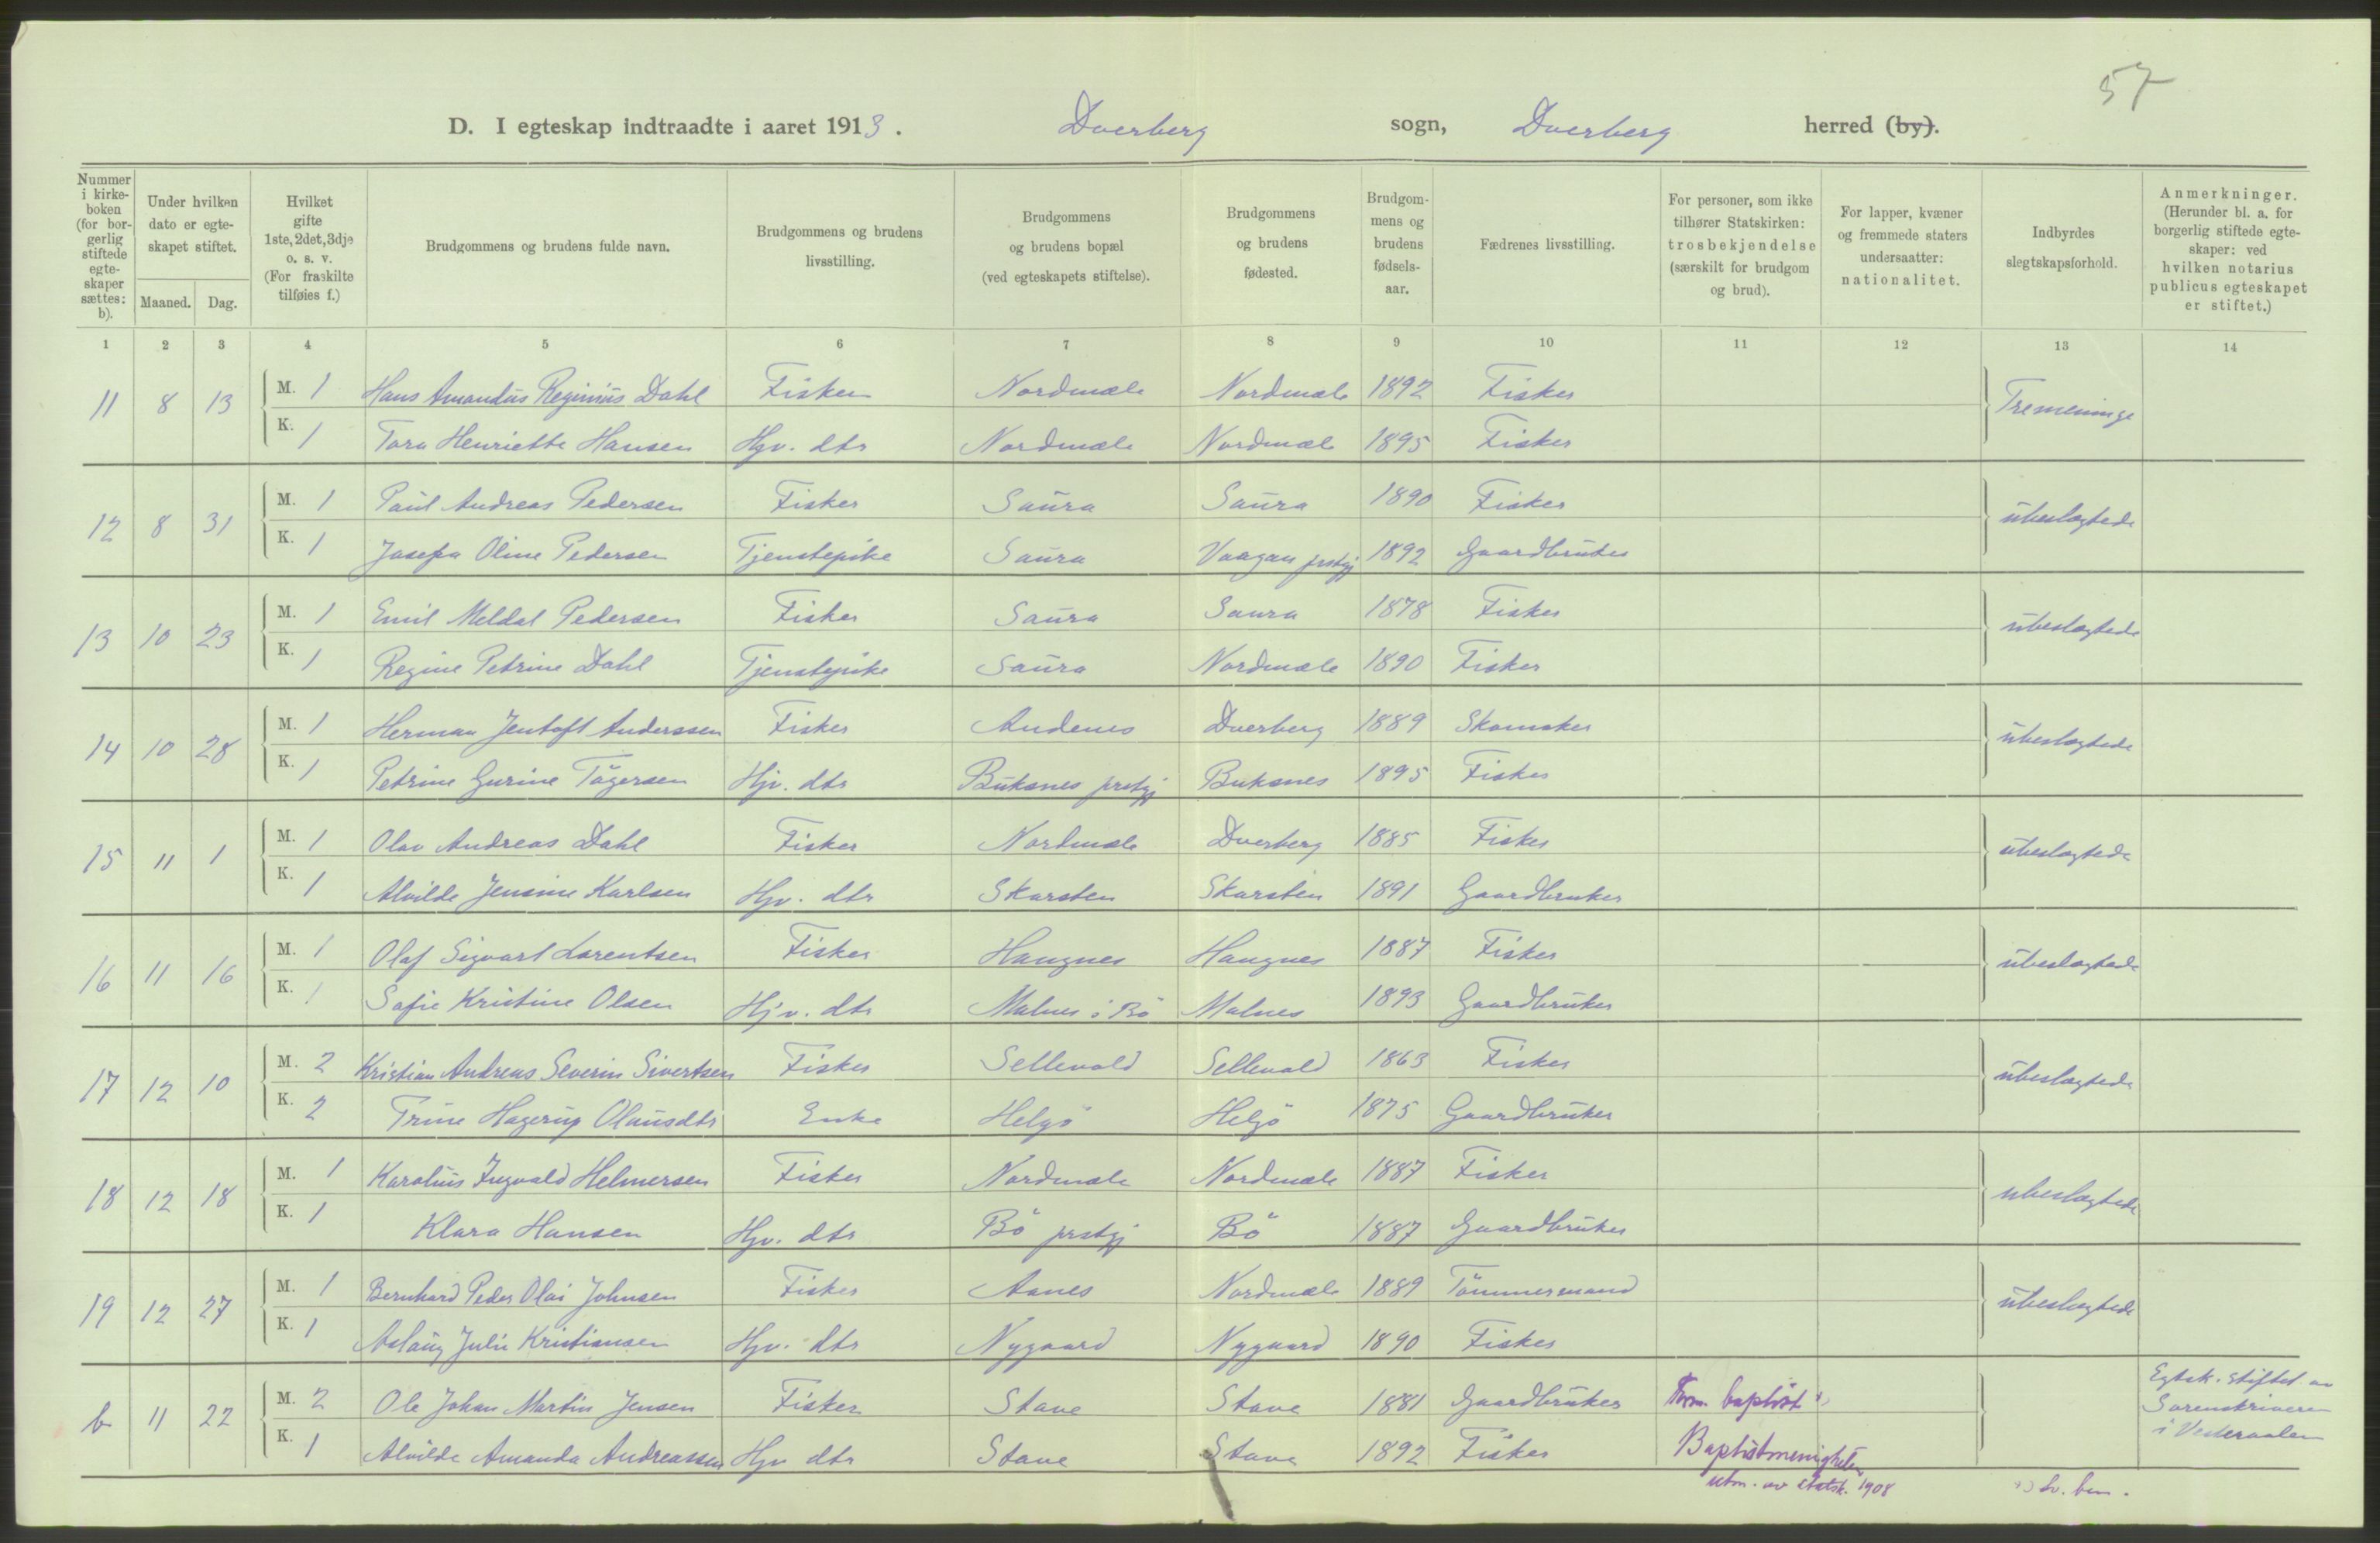 57
D. I egteskap indtraadte i aaret 1913. Dverberg sogn, Dverberg herred (by).
Nummer i kirkeboken (for borgerlig stiftede egteskaper sættes: b).
Under hvilken dato er egteskapet stiftet.
Maaned. Dag.
Hvilket gifte 1ste, 2det, 3dje o. s. v. (For fraskilte tilføies f.)
Brudgommens og brudens fulde navn.
Brudgommens og brudens livsstilling.
Brudgommens og brudens bopæl (ved egteskapets stiftelse).
Brudgommens og brudens fødested.
Brudgommens og brudens fødselsaar.
Fædrenes livsstilling.
For personer, som ikke tilhører Statskirken: trosbekjendelse (særskilt for brudgom og brud).
For lapper, kvæner og fremmede staters undersaatter: nationalitet.
Indbyrdes slegtskapsforhold.
Anmerkninger. (Herunder bl. a. for borgerlig stiftede egteskaper: ved hvilken notarius publicus egteskapet er stiftet.)
1 2 3 4 5 6 7 8 9 10 11 12 13 14
11 8 13 M. 1 Hans Amandus Reginius Dahl Fisker Nordmæle Nordmæle 1892 Fisker Tremeninge
K. 1 Tora Henriette Hansen Hjv. dtr Nordmæle Nordmæle 1895 Fisker
12 8 31 M. 1 Paul Andreas Pedersen Fisker Saura Saura 1890 Fisker ubeslægtede
K. 1 Josefa Oline Pedersen Tjenstepike Saura Vaagan prstgj 1892 Gaardbruker
13 10 23 M. 1 Emil Meldal Pedersen Fisker Saura Saura 1878 Fisker ubeslægtede
K. 1 Regine Petrine Dahl Tjenstepike Saura Nordmæle 1890 Fisker
14 10 28 M. 1 Herman Jentoft Anderssen Fisker Andenes Dverberg 1889 Skomaker ubeslægtede
K. 1 Petrine Gurine Tøgersen Hjv. dtr Buksnes prstgj Buksnes 1895 Fisker
15 11 1 M. 1 Olav Andreas Dahl Fisker Nordmæle Dverberg 1885 Fisker ubeslægtede
K. 1 Alvilde Jensine Karlsen Hjv. dtr Skarsten Skarsten 1891 Gaardbruker
16 11 16 M. 1 Olaf Sigvart Lorentsen Fisker Haugnes Haugnes 1887 Fisker ubeslægtede
K. 1 Sofie Kristine Olsen Hjv. dtr Malnes i Bö Malnes 1893 Gaardbruker
17 12 10 M. 2 Kristian Andreas Severin Sivertsen Fisker Sellevold Sellevold 1863 Fisker ubeslægtede
K. 2 Trine Hagerup Olausdtr Enke Helgö Helgö 1875 Gaardbruker
18 12 18 M. 1 Karolius Ingvald Helmersen Fisker Nordmæle Nordmæle 1887 Fisker ubeslægtede
K. 1 Klara Hansen Hjv. dtr Bö prstgj Bö 1887 Gaardbruker
19 12 27 M. 1 Bernhard Peder Olai Johnsen Fisker Aanes Nordmæle 1889 Tömmermand ubeslægtede
K. 1 Aslaug Julie Kristiansen Hjv. dtr Nygaard Nygaard 1890 Fisker
b 11 22 M. 2 Ole Johan Martin Jensen Fisker Stave Stave 1881 Gaardbruker baptist x) Egtsk. stiftet av Sorenskriveren i Vesteraalen
K. 1 Alvilde Amanda Andreassen Hjv dtr Stave Stave 1892 Fisker Baptistmenigheten
utm. av statsk. 1908